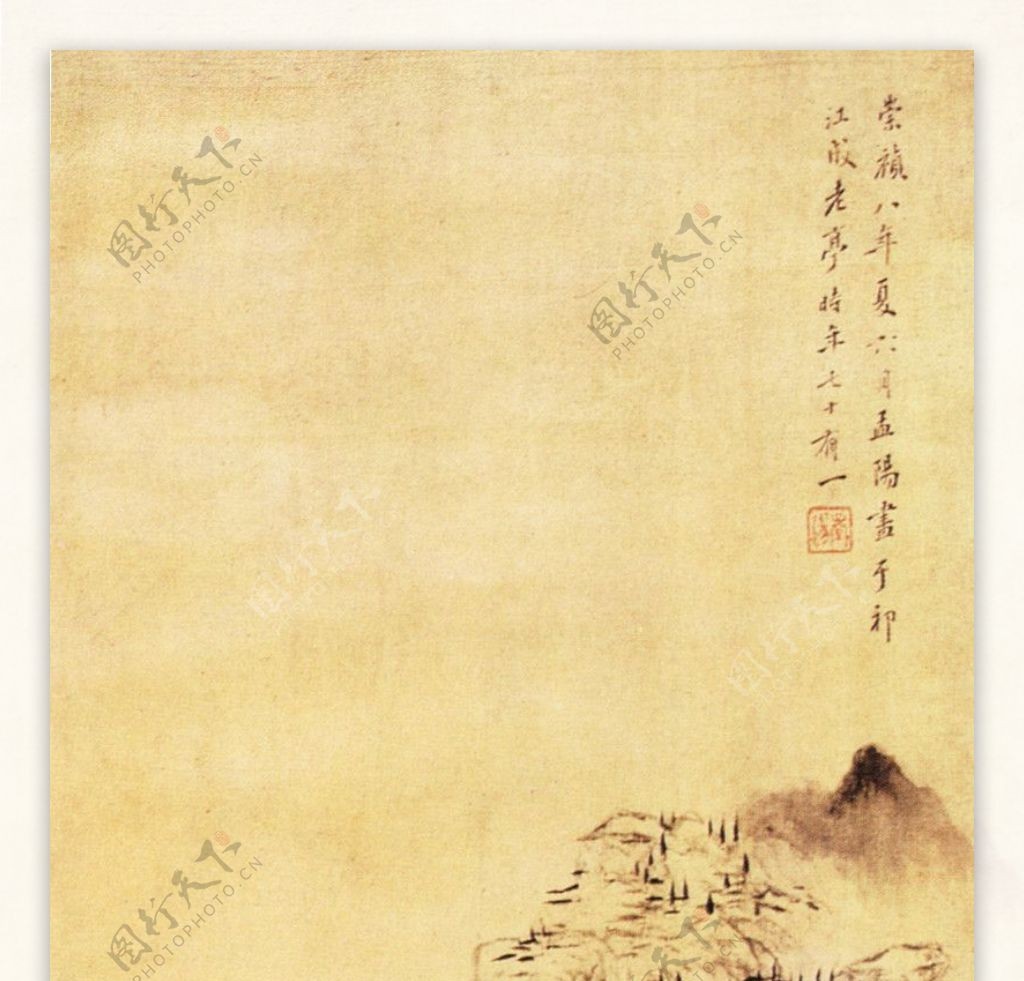 崇禎八年夏六月孟陽畫于祁
江成老亭時年七十有一
图行天下
PHOTOPHOTO.CN
图行天下
PHOTOPHOTO.CN
图行天下
PHOTOPHOTO.CN
图行天下
PHOTOPHOTO.CN
图行天下
PHOTOPHOTO.CN